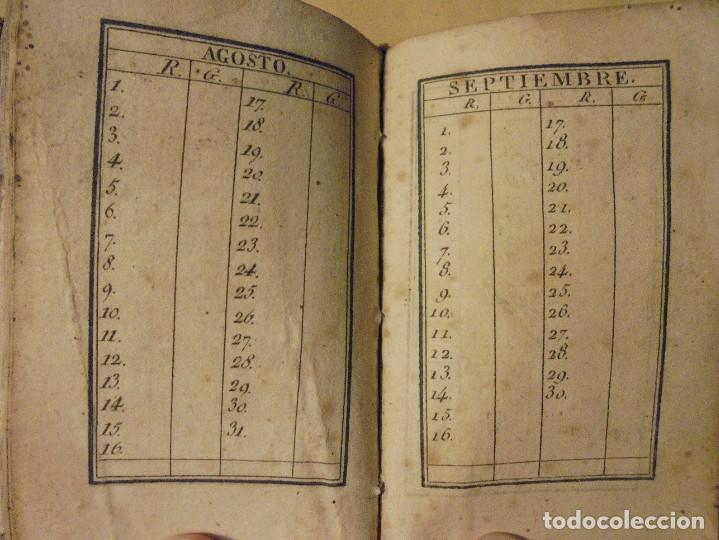 AGOSTO.
R. G. R. G.
1. 17.
2. 18.
3. 19.
4. 20.
5. 21.
6. 22.
7. 23.
8. 24.
9. 25.
10. 26.
11. 27.
12. 28.
13. 29.
14. 30.
15. 31.
16.
SEPTIEMBRE.
R. G. R. G.
1. 17.
2. 18.
3. 19.
4. 20.
5. 21.
6. 22.
7. 23.
8. 24.
9. 25.
10. 26.
11. 27.
12. 28.
13. 29.
14. 30.
15.
16.
todocoleccion
todocoleccion.net